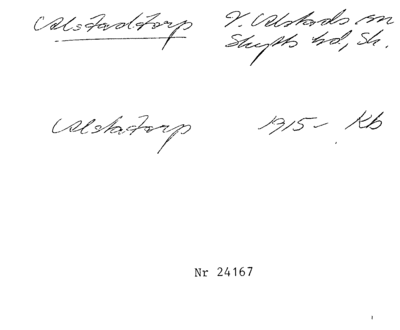 Alstadtorp V. Alstads sn
Skytts hd, Sk.
Alstatorp 1915- Kb
Nr 24167